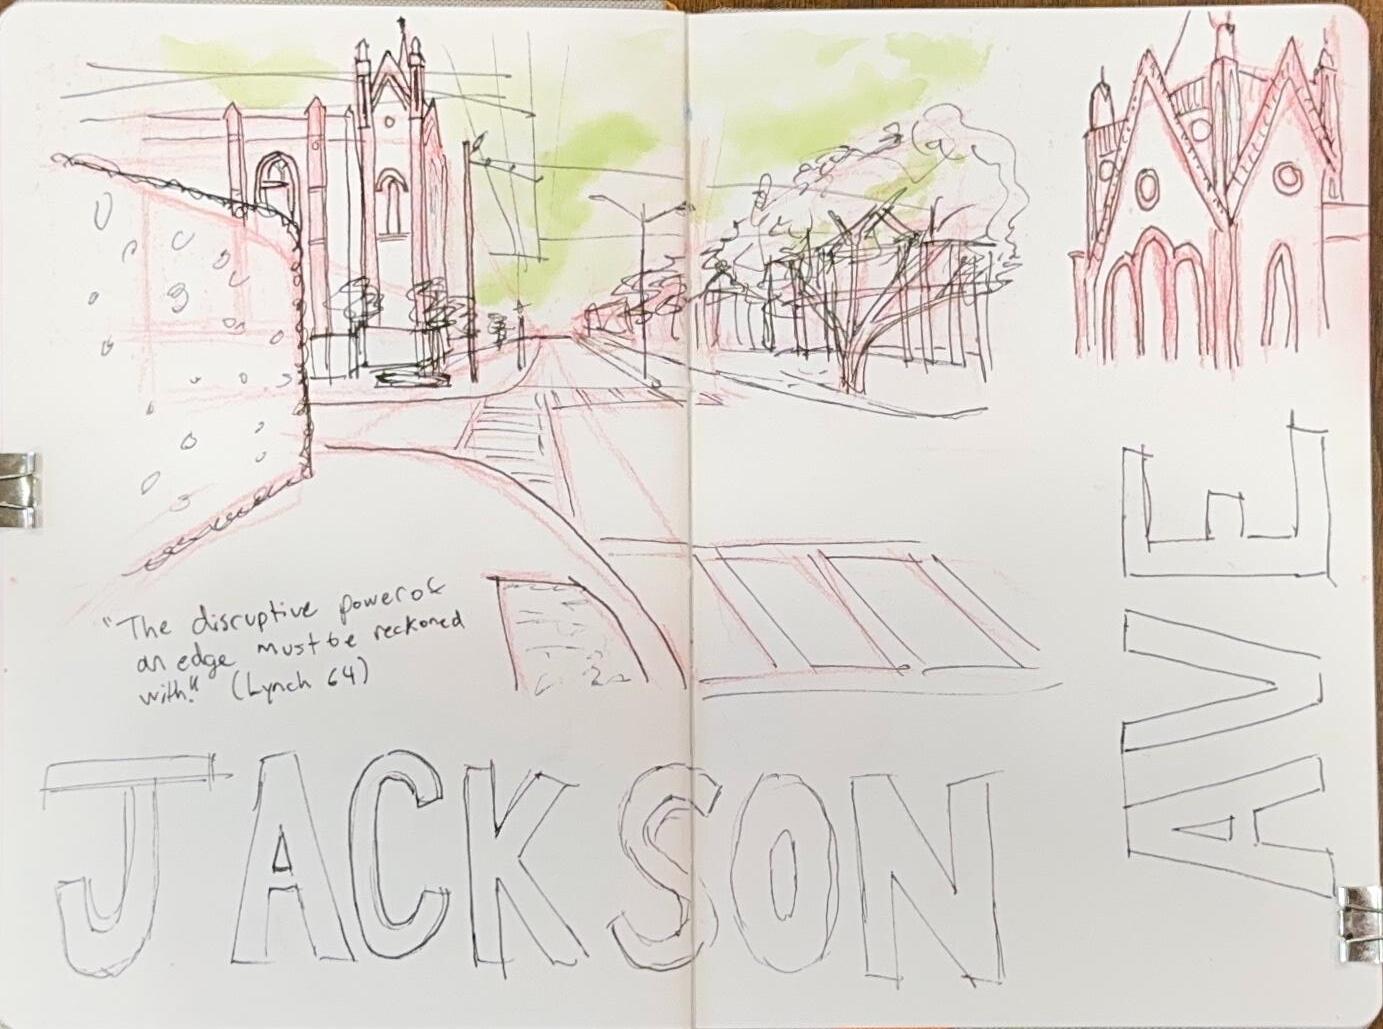 "The disruptive power of
an edge must be reckoned
with." (Lynch 64)
JACKSON
AVE